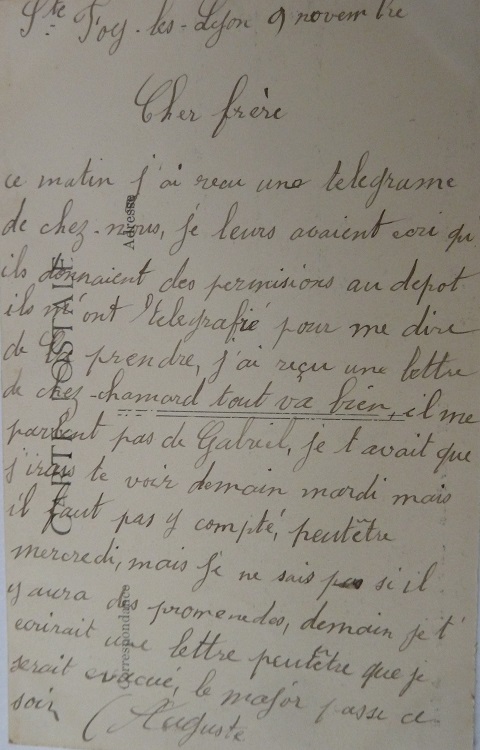 Ste Foy-les-Lyon 9 novembre
Cher frère
ce matin j'ai reçu une telegrame
de chez-nous, je leurs avaient ecri qu
ils donnaient des permisions au depot
ils m'ont telegrafié pour me dire
de la prendre, j'ai reçu une lettre
de chez-chamard tout va bien, il me
parlent pas de Gabriel, je t avait que
j'irais te voir demain mardi mais
il faut pas y compté, peutêtre
mercredi, mais je ne sais pas si il
y aura des promenedes, demain je t'
ecrirait une lettre peutêtre que je
serait evacué, le major passe ce
soir Auguste
CARTE POSTALE
Adresse
Correspondance